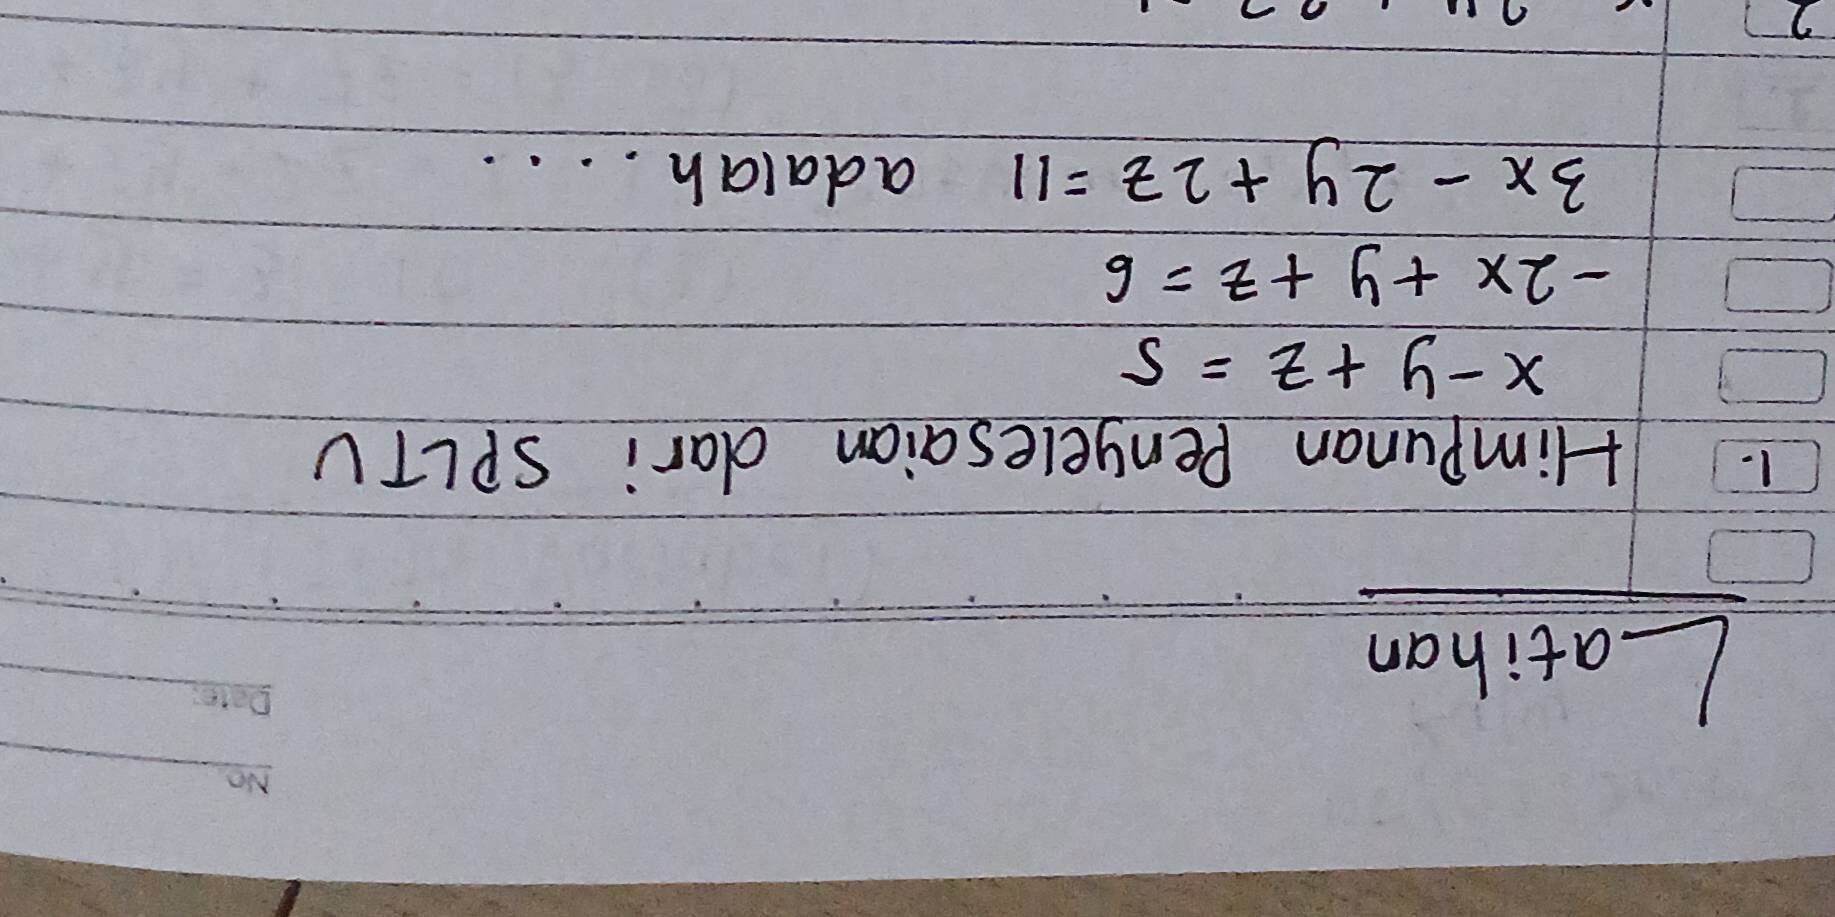 No
Date:
Latihan
1. Himpunan Penyelesaian dari SPLTV
x - y + z = 5
- 2x + y + z = 6
3x - 2y + 2z = 11 adalah . . . .
2